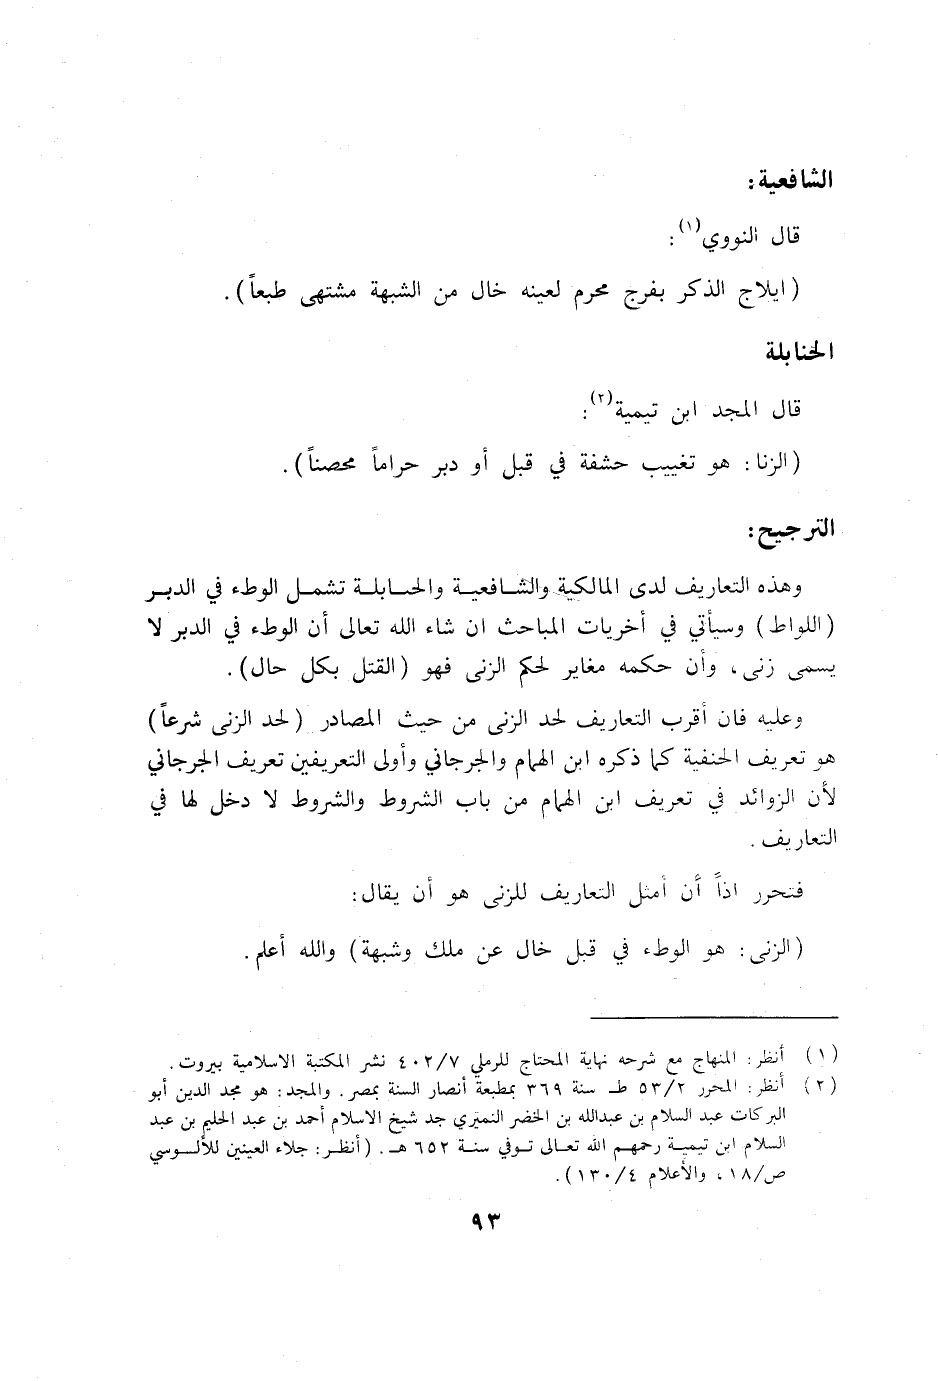 الشافعية:
قال النووي(١):
(ايلاج الذكر بفرج محرم لعينه خال من الشبهة مشتهى طبعاً).
الحنابلة
قال المجد ابن تيمية(٢):
(الزنا: هو تغييب حشفة في قبل أو دبر حراماً محصناً).
الترجيح:
وهذه التعاريف لدى المالكية والشافعية والحنابلة تشمل الوطء في الدبر
(اللواط) وسيأتي في أخريات المباحث ان شاء الله تعالى أن الوطء في الدبر لا
يسمى زنى، وأن حكمه مغاير لحكم الزنى فهو (القتل بكل حال).
وعليه فان أقرب التعاريف لحد الزنى من حيث المصادر (لحد الزنى شرعاً)
هو تعريف الحنفية كما ذكره ابن الهمام والجرجاني وأولى التعريفين تعريف الجرجاني
لأن الزوائد في تعريف ابن الهمام من باب الشروط والشروط لا دخل لها في
التعاريف.
فتحرر اذاً أن أمثل التعاريف للزنى هو أن يقال:
(الزنى: هو الوطء في قبل خال عن ملك وشبهة) والله أعلم.
(١) أنظر: المنهاج مع شرحه نهاية المحتاج للرملي ٤٠٢/٧ نشر المكتبة الاسلامية بيروت.
(٢) أنظر: المحرر ٥٣/٢ طـ سنة ٣٦٩ بمطبعة أنصار السنة بمصر. والمجد: هو مجد الدين أبو
البركات عبد السلام بن عبدالله بن الخضر النميري جد شيخ الاسلام أحمد بن عبد الحليم بن عبد
السلام ابن تيمية رحمهم الله تعالى توفي سنة ٦٥٢ هـ. (أنظر: جلاء العينين للألوسي
ص/١٨، والأعلام ١٣٠/٤).
٩٣